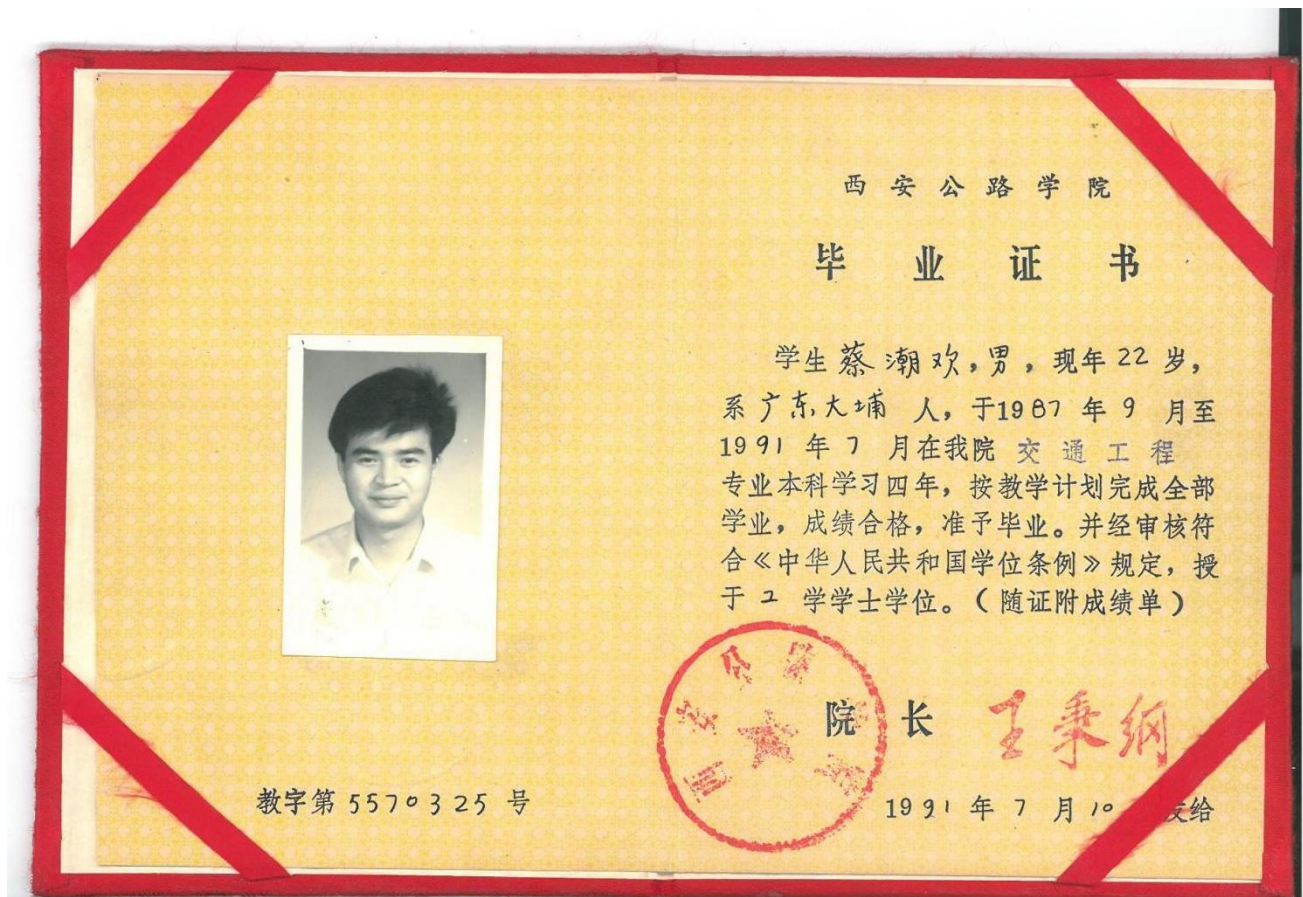 西安公路学院
毕业证书
学生蔡潮欢，男，现年22岁，
系广东大埔 人，于1987年9月至
1991年7月在我院 交通工程
专业本科学习四年，按教学计划完成全部
学业，成绩合格，准予毕业。并经审核符
合《中华人民共和国学位条例》规定，授
于工 学学士学位。（随证附成绩单）
西安公路学院
院长 王秉纲
1991年7月10 发给
教字第5570325号